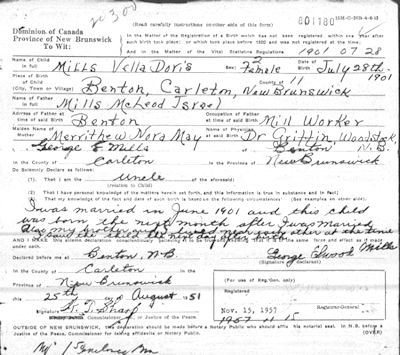 2c 300
(Read carefully instructions on other side of this form)
001180
Dominion of Canada
Province of New Brunswick
To Wit:
In the Matter of the Registration of a Birth which has not been registered within one year after such birth took place; or which took place before 1920 and was not registered at the time.
And in the Matter of the Vital Statistics Regulations
1901 07 28
Name of Child in full Mills Vella Doris Sex Female Date of Birth July 28th 1901
2
Place of Birth of Child (City, Town or Village) Benton, Carleton, New Brunswick
County of 11
Name of Father in full Mills McLeod Israel
Address of Father at time of said Birth Benton Occupation of Father at time of said Birth Mill Worker
Maiden Name of Mother Merrithew Nora May Name of Physician at said Birth Dr Griffin, Woodstock, N.B.
George E Mills of Benton
in the County of Carleton in the Province of New Brunswick
Do Solemnly Declare as follows:
(1). That I am the Uncle of the aforesaid)
(relation to Child)
(2). That I have personal knowledge of the matters herein set forth, and this information is true in substance and in fact;
That my knowledge of the fact and date of such birth is based on the following circumstances: (See examples on other side).
I was married in June 1901 and this child
was born the next month after I was married
Also my brother
near each other at the time
AND I MAKE this solemn declaration conscientiously believing it to be true and knowing that it is of the same force and effect as if made under oath.
Declared before me at Benton, N.B.
George Elwood Mills
(Signature of declarant)
in the County of Carleton
in the Province of New Brunswick
this 25th day of August 51
(For use of Registrar-General)
Registered
Nov. 15, 1957
1957 11 15
Registrar-General
or Justice of the Peace.
OUTSIDE OF NEW BRUNSWICK, this declaration should be made before a Notary Public who should affix his notarial seal. In N.B. before a Commissioner for taking affidavits or Notary Public.
(OVER)